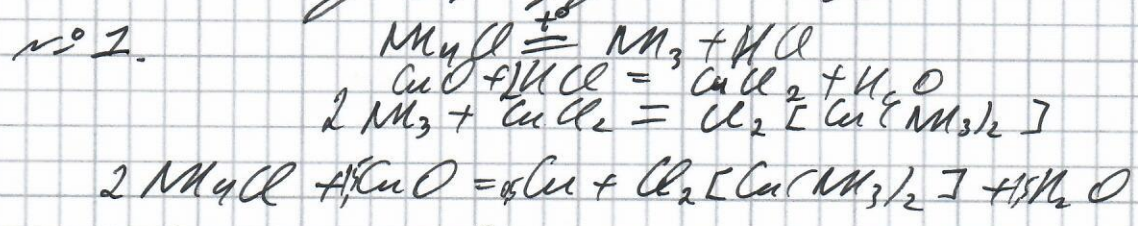 № 1. NH₄Cl =ᵗ° NH₃ + HCl
CuO + 2HCl = CuCl₂ + H₂O
2 NH₃ + CuCl₂ = Cl₂ [Cu(NH₃)₂]
2 NH₄Cl + 1,5CuO = 0,5Cu + Cl₂ [Cu(NH₃)₂] + 1,5H₂O